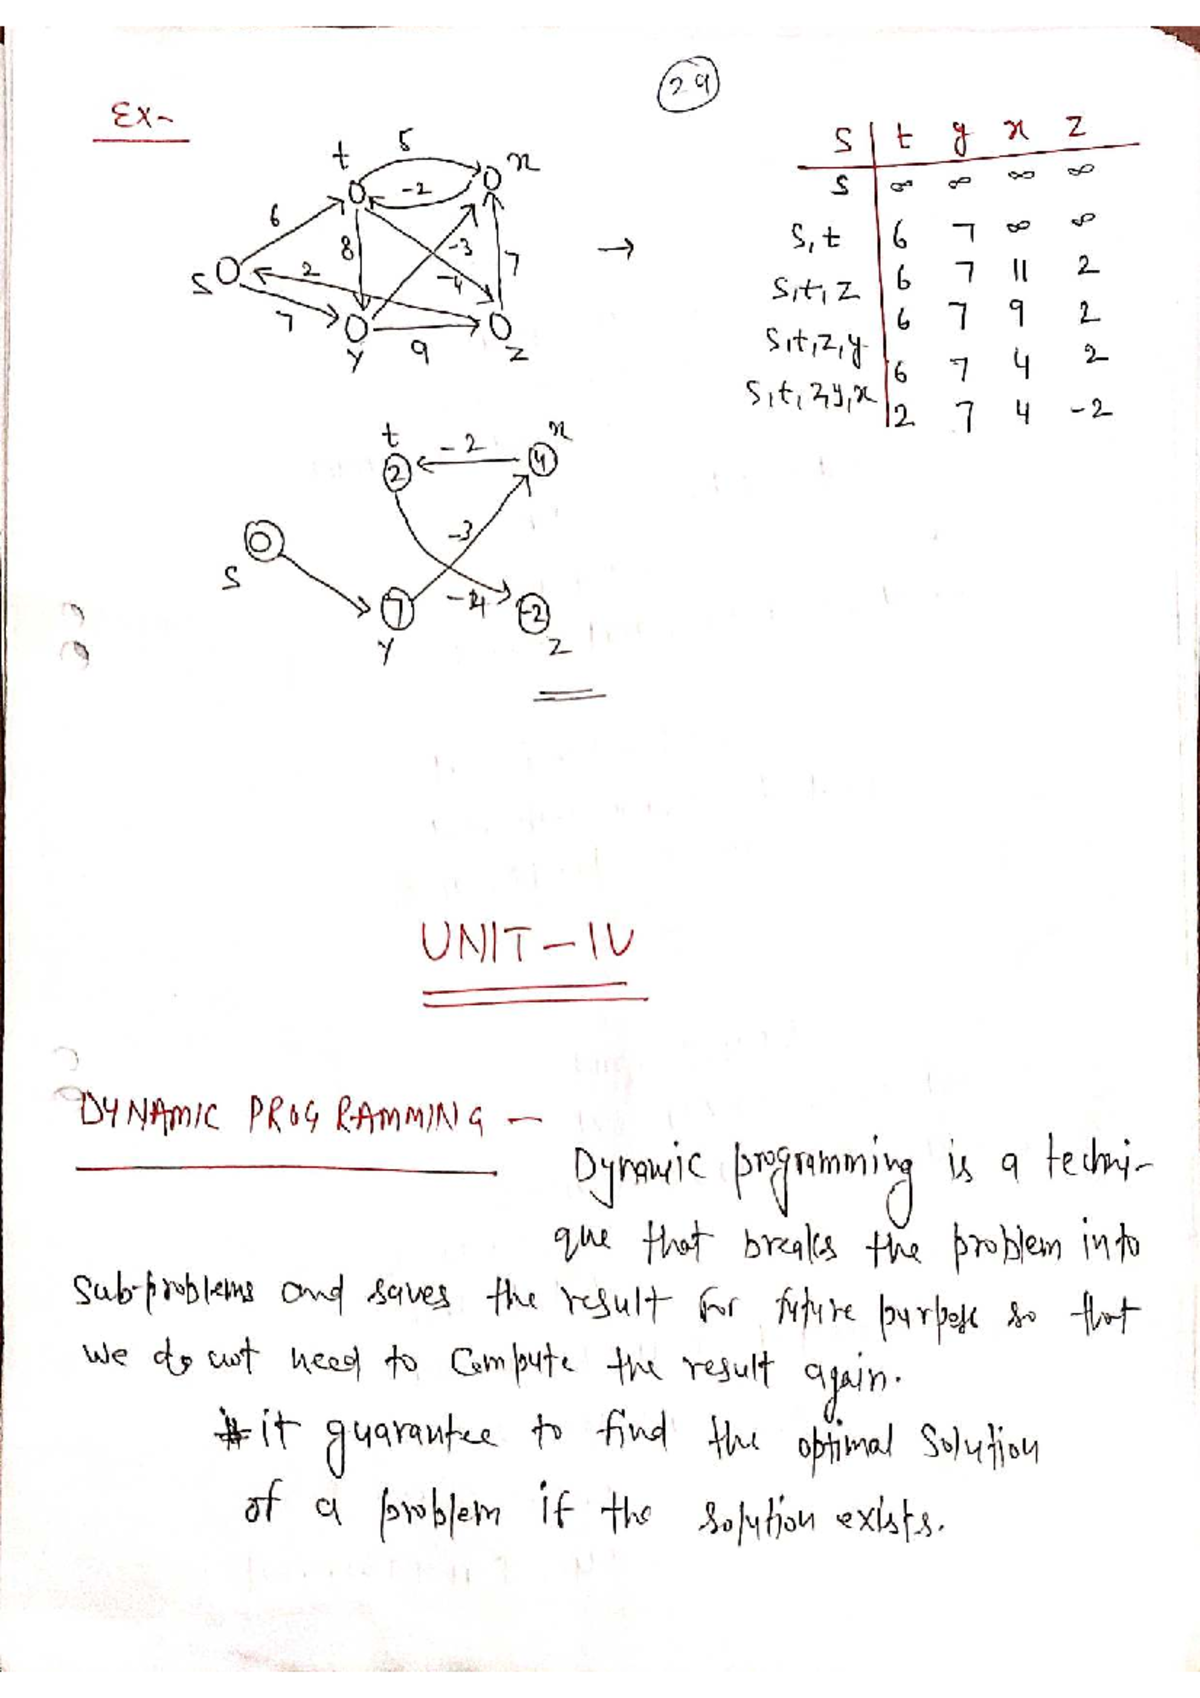 29
Ex-
t 5 x
6 -2
8 -3 7
S 2 -4
7
y 9 z
→
S t y x z
S ∞ ∞ ∞ ∞
S,t 6 7 ∞ ∞
S,t,z 6 7 11 2
S,t,z,y 6 7 9 2
S,t,z,y,x 6 7 4 2
2 7 4 -2
t -2 x
2 4
0 -3
S
7 -4 -2
y z
UNIT-IV
DYNAMIC PROGRAMMING -
Dynamic programming is a techni-
que that breaks the problem into
sub-problems and saves the result for future purpose so that
we do not need to compute the result again.
it guarantee to find the optimal solution
of a problem if the solution exists.